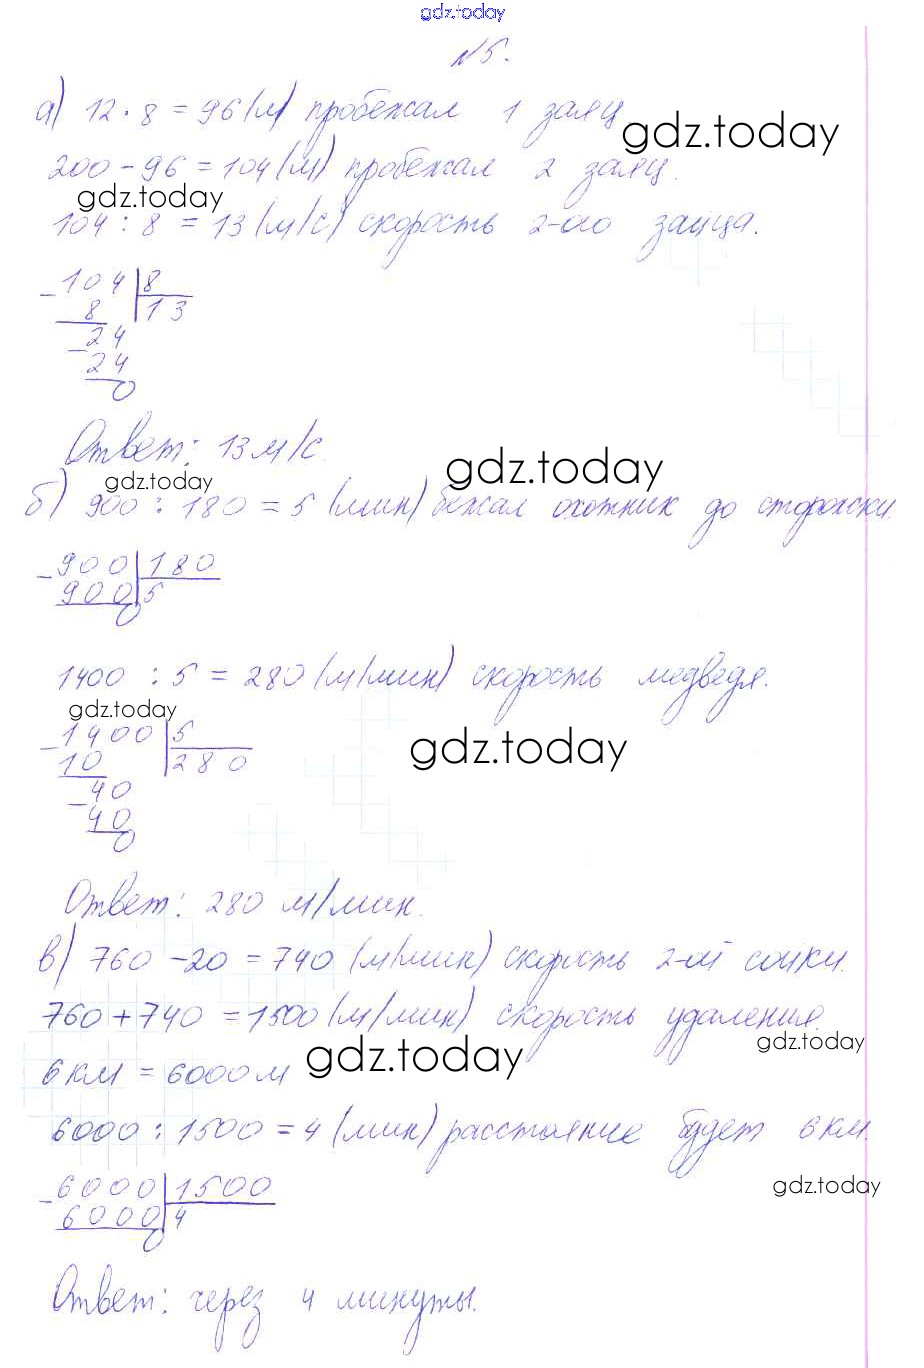 gdz.today
№5.
а) 12 · 8 = 96 (м) пробежал 1 заяц
gdz.today
200 - 96 = 104 (м) пробежал 2 заяц.
gdz.today
104 : 8 = 13 (м/с) скорость 2-ого зайца.
- 104 | 8
8 | 13
- 24
24
0
Ответ: 13 м/с.
gdz.today
gdz.today
б) 900 : 180 = 5 (мин) бежал охотник до сторожки.
- 900 | 180
900 | 5
0
1400 : 5 = 280 (м/мин) скорость медведя.
gdz.today
gdz.today
- 1400 | 5
10 | 280
- 40
40
0
Ответ: 280 м/мин.
в) 760 - 20 = 740 (м/мин) скорость 2-ой сойки.
760 + 740 = 1500 (м/мин) скорость удаления.
gdz.today
gdz.today
6 км = 6000 м
6000 : 1500 = 4 (мин) расстояние будет 6 км.
gdz.today
- 6000 | 1500
6000 | 4
0
Ответ: через 4 минуты.